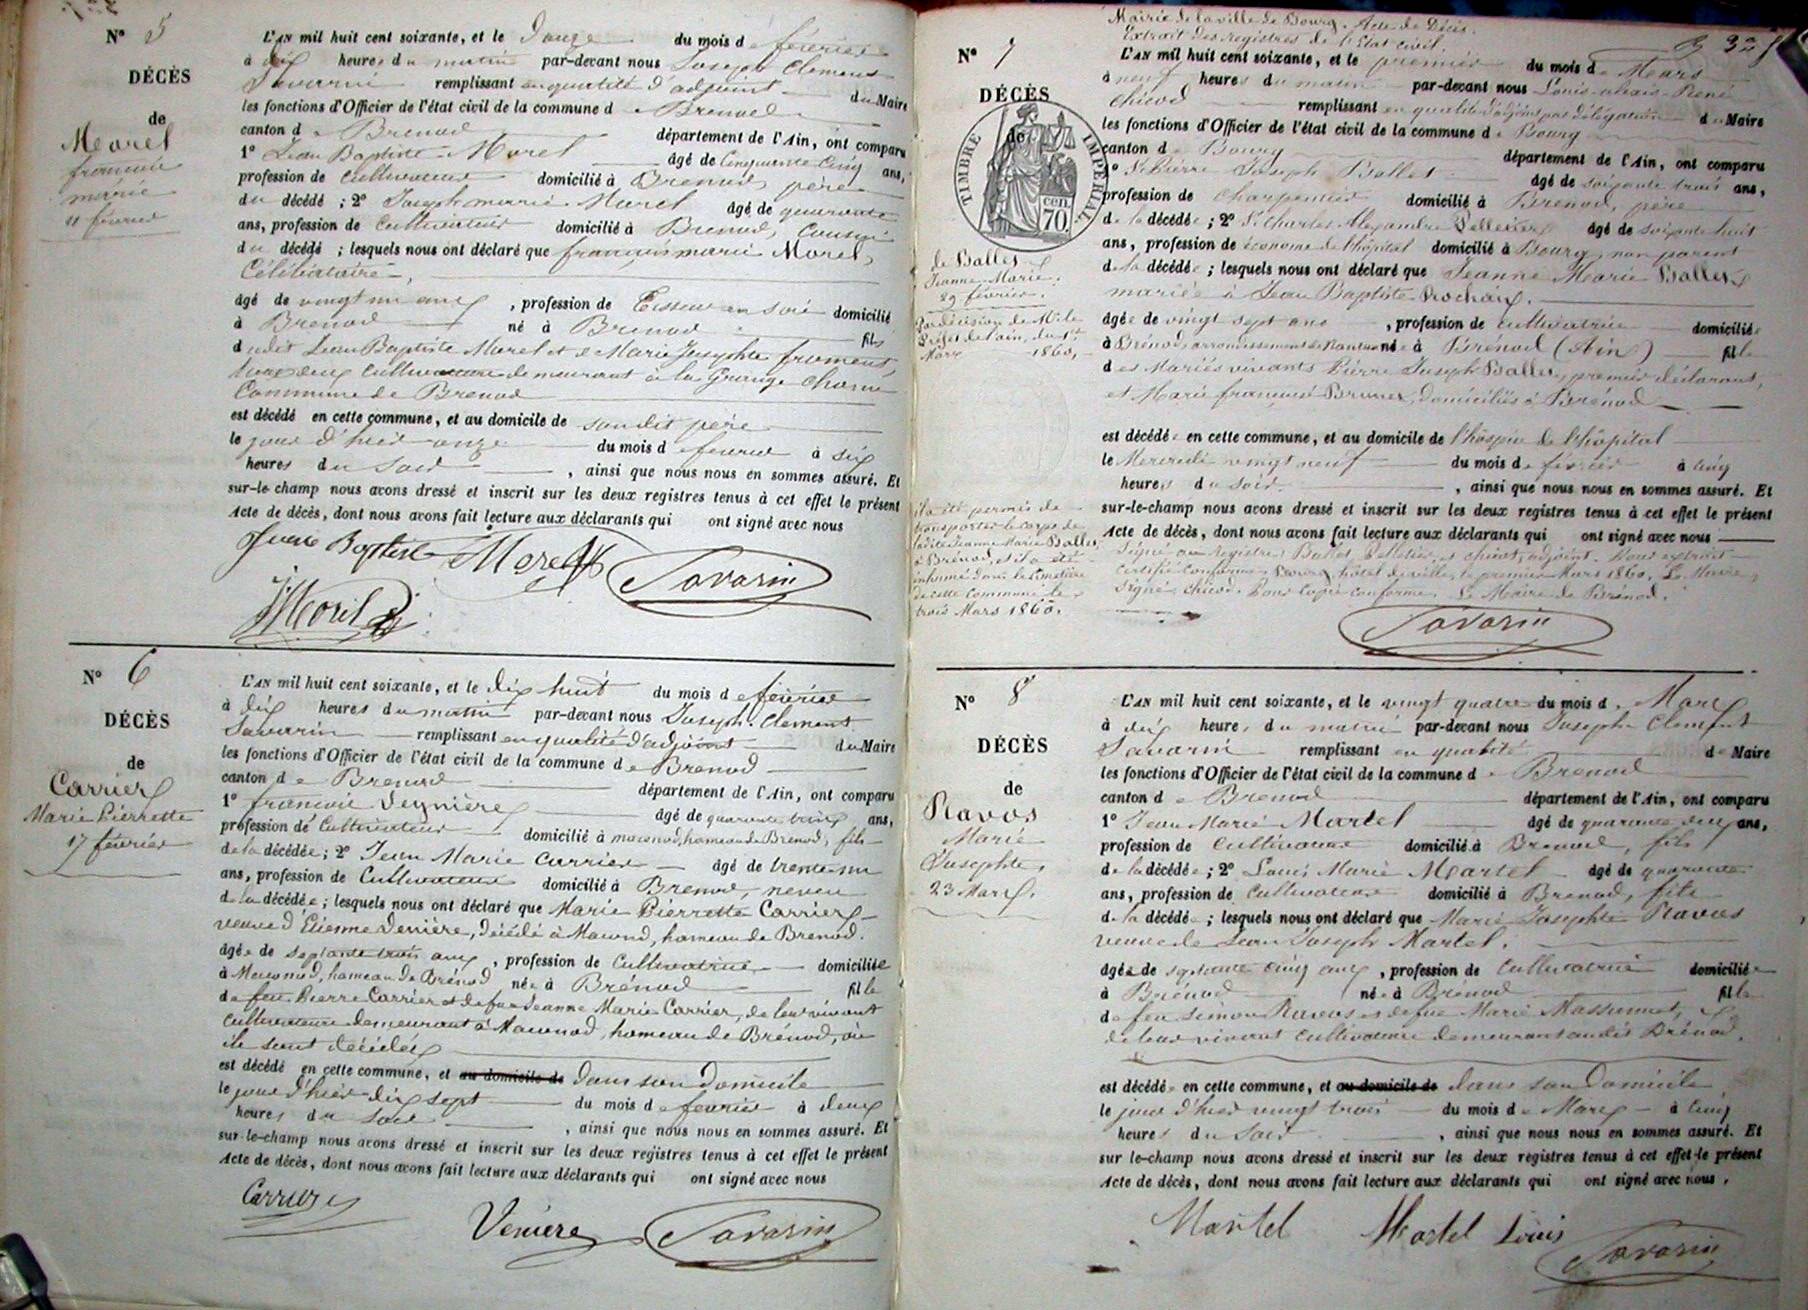 N° 5
DÉCÈS
de
Morel
françois
marie
11 février
L'AN mil huit cent soixante, et le douze du mois de février
à dix heures du matin par-devant nous Joseph Clément
Savarin remplissant en qualité d'adjoint du Maire
les fonctions d'Officier de l'état civil de la commune de Brenod
canton de Brenod département de l'Ain, ont comparu
1° Jean Baptiste Morel âgé de Cinquante Cinq ans,
profession de Cultivateur domicilié à Brenod, père
du décédé ; 2° Joseph marie Morel âgé de quarante
ans, profession de Cultivateur domicilié à Brenod, Cousin
du décédé ; lesquels nous ont déclaré que françois marie Morel,
Célibataire,
âgé de vingt un ans, profession de Tisseur en soie domicilié
à Brenod né à Brenod fils
dudit Jean Baptiste Morel et de Marie Josephte froment,
tous deux Cultivateurs demeurant à la Grange
Commune de Brenod
est décédé en cette commune, et au domicile de son dit père
le jour d'hier onze du mois de février à six
heures du Soir , ainsi que nous nous en sommes assuré. Et
sur-le-champ nous avons dressé et inscrit sur les deux registres tenus à cet effet le présent
Acte de décès, dont nous avons fait lecture aux déclarants qui ont signé avec nous
Jean Baptiste Morel
Savarin
JMorel
N° 6
DÉCÈS
de
Carrier
Marie Pierrette
17 février
L'AN mil huit cent soixante, et le dix huit du mois de février
à dix heures du matin par-devant nous Joseph Clément
Savarin remplissant en qualité d'adjoint du Maire
les fonctions d'Officier de l'état civil de la commune de Brenod
canton de Brenod département de l'Ain, ont comparu
1° françois Venière âgé de quarante ans,
profession de Cultivateur domicilié à macconod, hameau de Brenod, fils
de la décédée ; 2° Jean Marie Carrier âgé de trente un
ans, profession de Cultivateur domicilié à Brenod, neveu
de la décédée ; lesquels nous ont déclaré que Marie Pierrette Carrier
veuve d'Etienne Venière, décédé à Maconod, hameau de Brenod.
âgée de septante trois ans, profession de Cultivatrice domiciliée
à Maconod, hameau de Brénod née à Brénod fille
de feu Pierre Carrier et de feue Jeanne Marie Carrier, de leur vivant
cultivateurs demeurant à Maconod, hameau de Brénod, où
ils sont décédés
est décédé en cette commune, et au domicile de dans son domicile
le jour d'hier dix sept du mois de février à deux
heures du soir , ainsi que nous nous en sommes assuré. Et
sur-le-champ nous avons dressé et inscrit sur les deux registres tenus à cet effet le présent
Acte de décès, dont nous avons fait lecture aux déclarants qui ont signé avec nous
Carrier
Veniere
Savarin
Mairie de la ville de Bourg. Acte de Décès.
Extrait des registres de l'Etat civil.
N° 7
DÉCÈS
de
TIMBRE IMPÉRIAL
cen.
70.
de Ballet
Jeanne Marie.
29 février.
Par décision de Mr le
Préfet de l'ain, du 1er
Mars 1860,
il a été permis de
transporter le corps de
ladite Jeanne Marie Ballet,
à Brénod, et il a été
inhumé dans le Cimetière
de cette commune le
trois Mars 1860.
L'AN mil huit cent soixante, et le premier du mois de Mars
à neuf heures du matin par-devant nous Louis René
Chicod remplissant en qualité d'adjoint par délégation du Maire
les fonctions d'Officier de l'état civil de la commune de Bourg
canton de Bourg département de l'Ain, ont comparu
1° Sr Pierre Joseph Ballet âgé de soixante trois ans,
profession de charpentier domicilié à Brenod, père
de la décédée ; 2° Sr Charles Alexandre Pelletier âgé de soixante huit
ans, profession de économe de l'hôpital domicilié à Bourg, non parent
de la décédée ; lesquels nous ont déclaré que Jeanne Marie Ballet
mariée à Jean Baptiste Prochaix.
âgée de vingt sept ans , profession de cultivatrice domiciliée
à Brénod, arrondissement de Nantua née à Brénod (Ain) fille
des Mariés vivants Pierre Joseph Ballet, premier déclarant,
et Marie françoise Brunet, domiciliés à Brénod
est décédée en cette commune, et au domicile de l'hospice de l'hôpital
le Mercredi vingt neuf du mois de février à cinq
heures du soir , ainsi que nous nous en sommes assuré. Et
sur-le-champ nous avons dressé et inscrit sur les deux registres tenus à cet effet le présent
Acte de décès, dont nous avons fait lecture aux déclarants qui ont signé avec nous
Signé au registre, Ballet, Pelletier, et chicod, adjoint. Pour extrait
certifié conforme. Bourg, hôtel de ville, le premier Mars 1860. Le Maire,
Signé chicod. Pour copie conforme. Le Maire de Brénod.
Savarin
N° 8
DÉCÈS
de
Ravos
Marie
Josephte,
23 Mars.
L'AN mil huit cent soixante, et le vingt quatre du mois de Mars
à dix heures du matin par-devant nous Joseph Clément
Savarin remplissant en qualité de Maire
les fonctions d'Officier de l'état civil de la commune de Brenod
canton de Brenod département de l'Ain, ont comparu
1° Jean Marie Martel âgé de quarante deux ans,
profession de Cultivateur domicilié à Brenod, fils
de la décédée ; 2° Louis Marie Martel âgé de quarante
ans, profession de Cultivateur domicilié à Brenod, fils
de la décédée ; lesquels nous ont déclaré que Marie Josephte Ravos
veuve de Jean Joseph Martel.
âgée de septante cinq ans, profession de Cultivatrice domiciliée
à Brénod née à Brénod fille
de feu Simon Ravos et de feue Marie Massonnet,
de leur vivant cultivateurs demeurant audit Brénod.
est décédée en cette commune, et au domicile de dans son Domicile
le jour d'hier vingt trois du mois de Mars à cinq
heures du Soir , ainsi que nous nous en sommes assuré. Et
sur le-champ nous avons dressé et inscrit sur les deux registres tenus à cet effet le présent
Acte de décès, dont nous avons fait lecture aux déclarants qui ont signé avec nous.
Martel
Martel Louis
Savarin